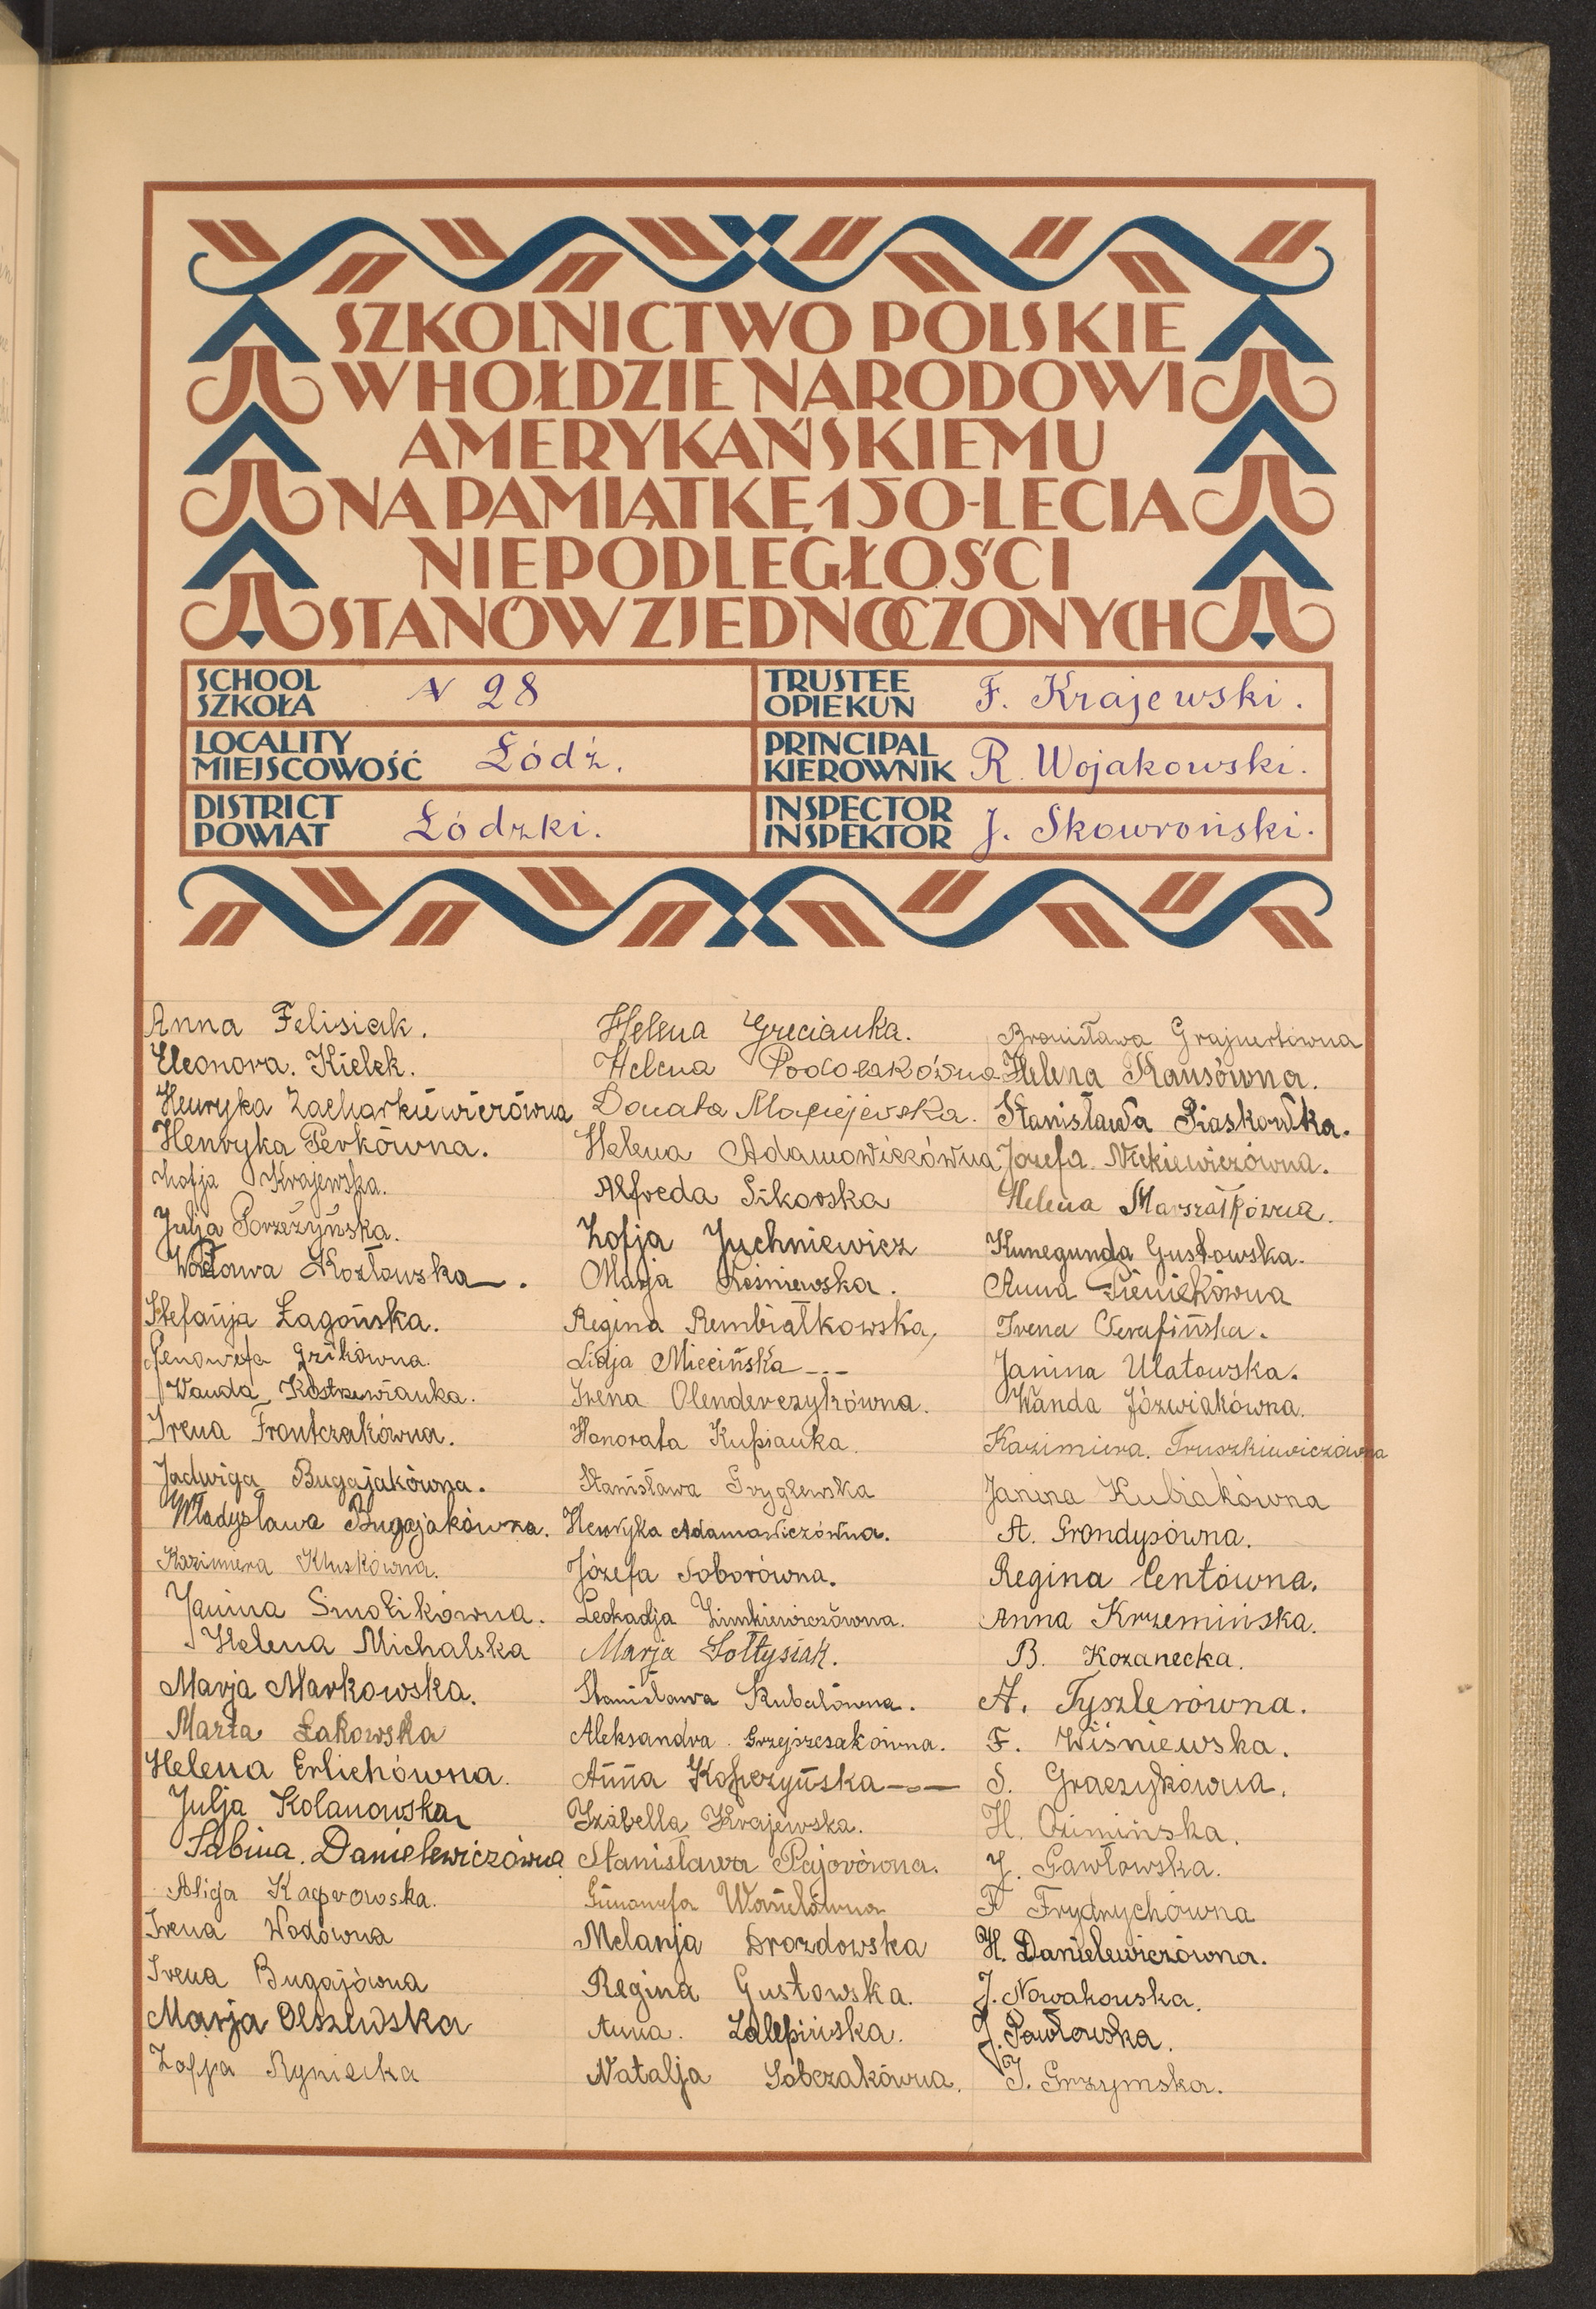 SZKOLNICTWO POLSKIE
W HOŁDZIE NARODOWI
AMERYKAŃSKIEMU
NA PAMIĄTKĘ 150-LECIA
NIEPODLEGŁOŚCI
STANÓW ZJEDNOCZONYCH
SCHOOL
SZKOŁA
N 28
TRUSTEE
OPIEKUN
F. Krajewski.
LOCALITY
MIEJSCOWOŚĆ
Łódź.
PRINCIPAL
KIEROWNIK
R. Wojakowski.
DISTRICT
POWIAT
Łódzki.
INSPECTOR
INSPEKTOR
J. Skowroński.
Anna Felisiak.
Eleonora. Kielek.
Henryka Zacharkiewiczówna
Henryka Perkówna.
Zofja Krajewska.
Julja Porzeżyńska.
Wacława Kozłowska.
Stefanja Łagońska.
Genowefa Grzikówna.
Wanda Kostrzewianka.
Irena Frontczakówna.
Jadwiga Bugajakówna.
Władysława Bugajakówna.
Kazimiera Kluskówna.
Janina Smolikówna.
Helena Michalska
Marja Markowska.
Marta Łakowska
Helena Erlichówna.
Julja Kolanowska
Sabina. Danielewiczówna
Alicja Kacprowska.
Irena Wodówna
Irena Bugajówna
Marja Olszewska
Zofja Ryniecka
Helena Grecianka.
Helena Podolakówna
Donata Maciejewska.
Helena Adamowiczówna
Alfreda Sikorska
Zofja Juchniewicz
Marja Leśniewska.
Regina Rembiałkowska,
Lidja Miecińska
Irena Olenderczykówna.
Honorata Kupsianka.
Stanisława Gryglewska
Henryka Adamowiczówna.
Józefa Soborówna.
Leokadja Zimkiewiczówna.
Marja Sołtysiak.
Stanisława Kubalówna.
Aleksandra Grzejszczakówna.
Anna Kopczyńska
Izabella Krajewska.
Stanisława Pajorówna.
Melanja Drozdowska
Regina Gustowska.
Anna. Zalepińska.
Natalja Sobczakówna.
Bronisława Grajnertówna
Helena Kausówna.
Stanisława Piaskowska.
Józefa Nickiewiczówna.
Helena Marszałkówna.
Kunegunda Gustowska.
Anna Pieniekówna
Irena Serafińska.
Janina Ulatowska.
Wanda Józwiakówna.
Kazimiera. Truszkiewiczówna
Janina Kubiakówna
A. Grondysówna.
Regina Centówna.
Anna Krzemińska.
B. Kozanecka.
A. Tyszlerówna.
F. Wiśniewska.
S. Graczykówna.
H. Ozimińska.
J. Gawłowska.
F Frydrychówna
H. Danielewiczówna.
J. Nowakowska.
J. Pawłowska.
J. Grzymska.